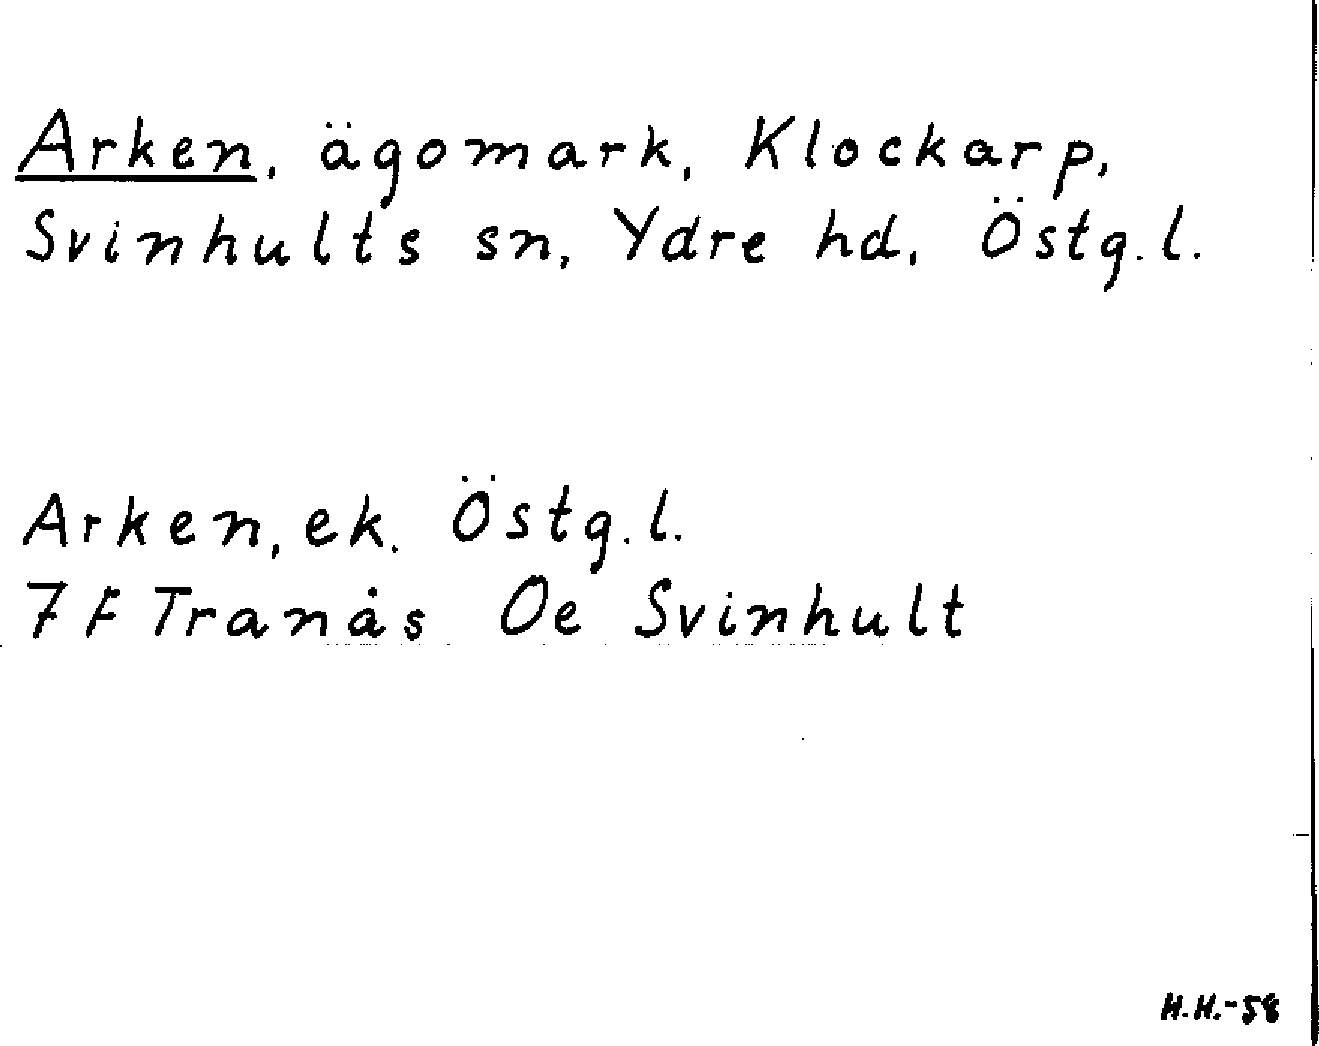 Arken, ägomark, Klockarp,
Svinhults sn, Ydre hd, Östg.l.
Arken, ek. Östg.l.
7 F Tranås Oe Svinhult
H.H.-58